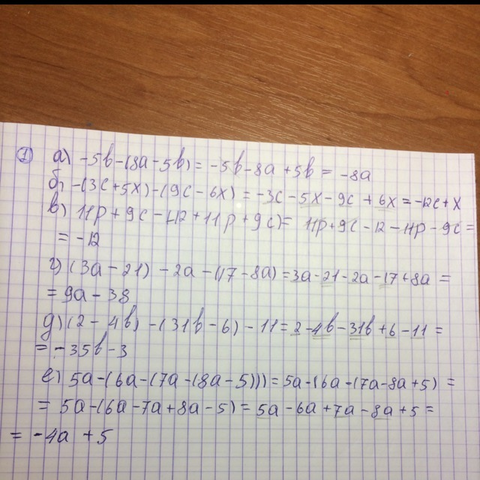 ① а) -5b-(8a-5b)= -5b-8a+5b= -8a
б) -(3c+5x)-(9c-6x)=-3c-5x-9c+6x=-12c+x
в) 11p+9c-(12+11p+9c)= 11p+9c-12-11p-9c=
= -12
г) (3a-21)-2a-(17-8a)=3a-21-2a-17+8a=
=9a-38
д) (2-4b)-(31b-6)-11=2-4b-31b+6-11=
= -35b-3
е) 5a-(6a-(7a-(8a-5)))=5a-(6a-(7a-8a+5)=
= 5a-(6a-7a+8a-5)=5a-6a+7a-8a+5=
= -4a+5